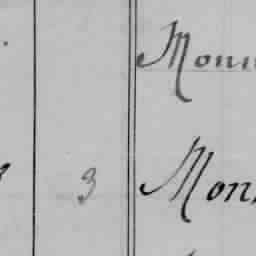 Monn
3 Mons